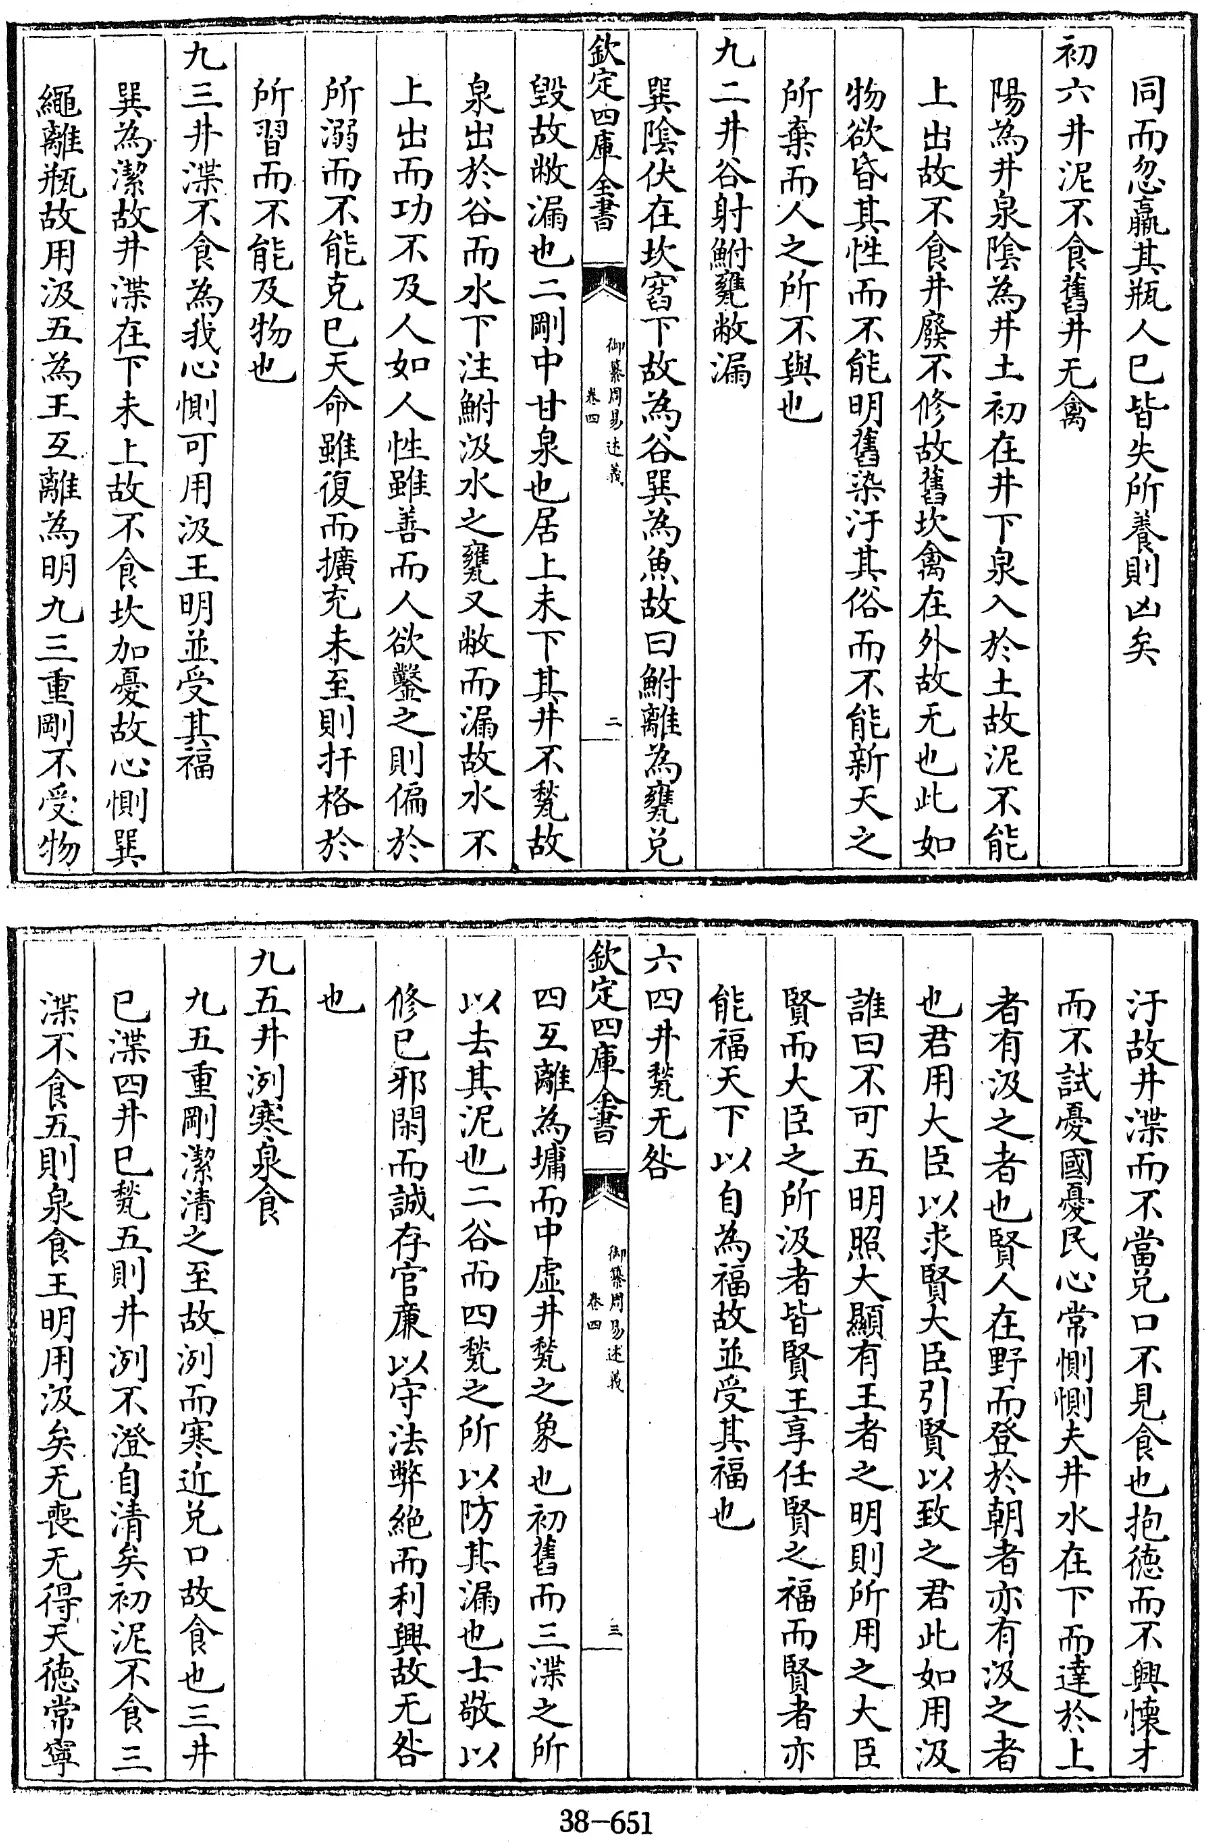 同而忽羸其瓶人巳皆失所養則凶矣
初六井泥不食舊井无禽
陽為井泉陰為井土初在井下泉入於土故泥不能
上出故不食井廢不修故舊坎禽在外故无也此如
物欲昏其性而不能明舊染汙其俗而不能新天之
所棄而人之所不與也
九二井谷射鮒甕敝漏
巽陰伏在坎窞下故為谷巽為魚故曰鮒離為甕兌
欽定四庫全書
御纂周易述義
卷四
二
毀故敝漏也二剛中甘泉也居上未下其井不甃故
泉出於谷而水下注鮒汲水之甕又敝而漏故水不
上出而功不及人如人性雖善而人欲鑿之則偏於
所溺而不能克巳天命雖復而擴充未至則扞格於
所習而不能及物也
九三井渫不食為我心惻可用汲王明並受其福
巽為潔故井渫在下未上故不食坎加憂故心惻巽
繩離瓶故用汲五為王互離為明九三重剛不受物
汙故井渫而不當兌口不見食也抱德而不興懷才
而不試憂國憂民心常惻惻夫井水在下而達於上
者有汲之者也賢人在野而登於朝者亦有汲之者
也君用大臣以求賢大臣引賢以致之君此如用汲
誰曰不可五明照大顯有王者之明則所用之大臣
賢而大臣之所汲者皆賢王享任賢之福而賢者亦
能福天下以自為福故並受其福也
六四井甃无咎
欽定四庫全書
御纂周易述義
卷四
三
四互離為墉而中虛井甃之象也初舊而三渫之所
以去其泥也二谷而四甃之所以防其漏也士敬以
修巳邪閑而誠存官亷以守法弊絶而利興故无咎
也
九五井洌寒泉食
九五重剛潔清之至故洌而寒近兌口故食也三井
巳渫四井巳甃五則井洌不澄自清矣初泥不食三
渫不食五則泉食王明用汲矣无喪无得天德常寧
38-651